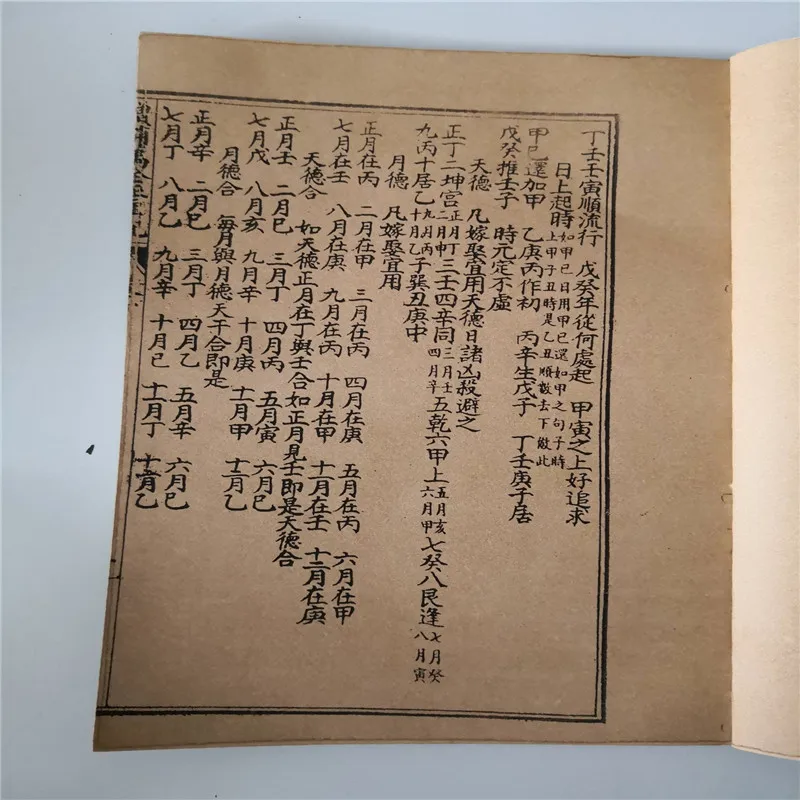 丁壬壬寅順流行 戊癸年從何處起 甲寅之上好追求
日上起時 如甲巳日用甲巳還如甲之句子時
上甲子丑時是乙丑順數去下倣此
甲巳還加甲 乙庚丙作初 丙辛生戊子 丁壬庚子居
戊癸推壬子 時元定不虛
天德 凡嫁娶宜用天德日諸凶殺避之
正丁二坤宮 正月丁二月申 三壬四辛同 三月壬四月辛 五乾六甲上 五月亥六月甲 七癸八艮逢 七月癸八月寅
九丙十居乙 九月丙十月乙 子巽丑庚中
月德 凡嫁娶宜用
正月在丙 二月在甲 三月在丙 四月在庚 五月在丙 六月在甲
七月在壬 八月在庚 九月在丙 十月在甲 十一月在壬 十二月在庚
天德合 如天德正月在丁與壬合如正月見壬即是天德合
正月壬 二月巳 三月丁 四月丙 五月寅 六月巳
七月戊 八月亥 九月辛 十月庚 十一月甲 十二月乙
月德合 每月與月德天干合即是
正月辛 二月巳 三月丁 四月乙 五月辛 六月巳
七月丁 八月乙 九月辛 十月巳 十一月丁 十二月乙